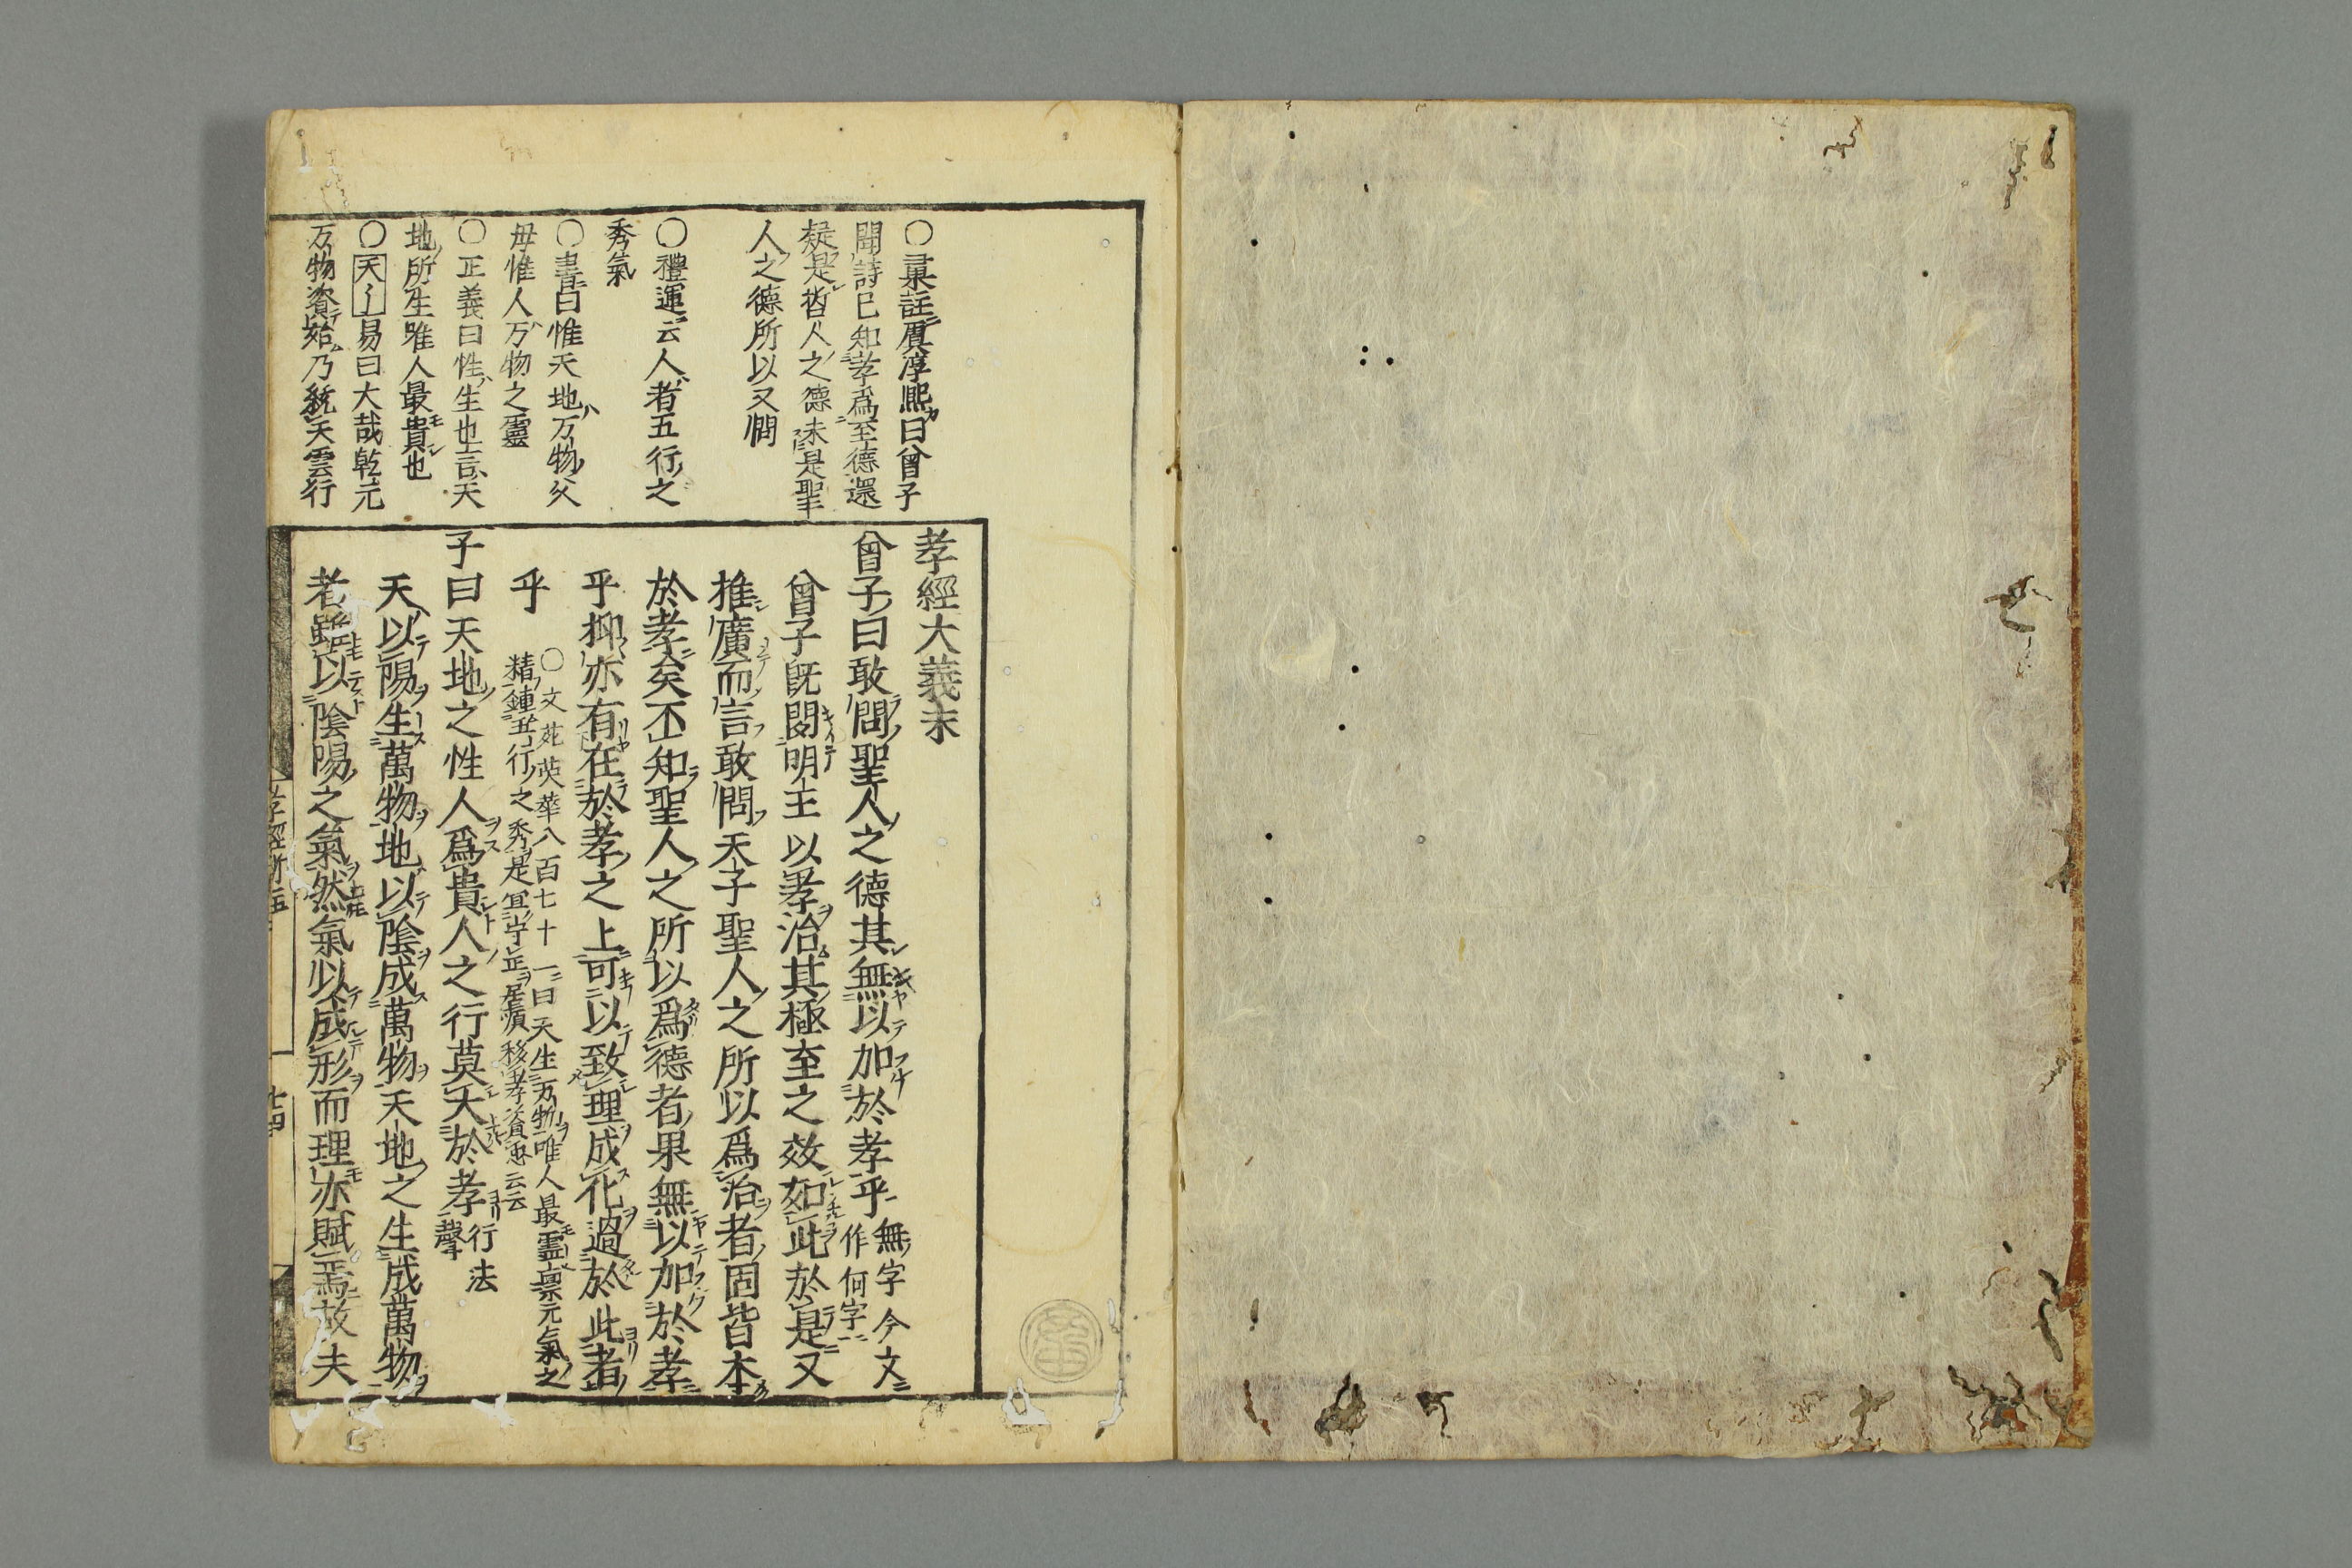 ○彙註虞淳熙曰曾子
聞詩已知孝爲至德還
疑是皆人之德未是聖
人之德所以又問
○禮運云人者五行之
秀氣
○書曰惟天地万物父
毋惟人万物之靈
○正義曰性生也言天
地所生唯人最貴也
○天易曰大哉乾元
万物資始乃統天雲行
孝經大義末
曾子曰敢問聖人之德其無以加於孝乎
無字今文
作何字
曾子既聞明王以孝治其極至之效如此於是又
推廣而言敢問天子聖人之所以爲治者固皆本
於孝矣不知聖人之所以爲德者果無以加於孝
乎抑亦有在於孝之上可以致理成化過於此者
乎
○文苑英華八百七十一曰天生万物唯人最霊稟元氣之
精鍾五行之秀是宜守正居慎移孝資忠云云
子曰天地之性人爲貴人之行莫大於孝
行法
聲
天以陽生萬物地以陰成萬物天地之生成萬物
者雖以陰陽之氣然氣以成形而理亦賦焉故夫